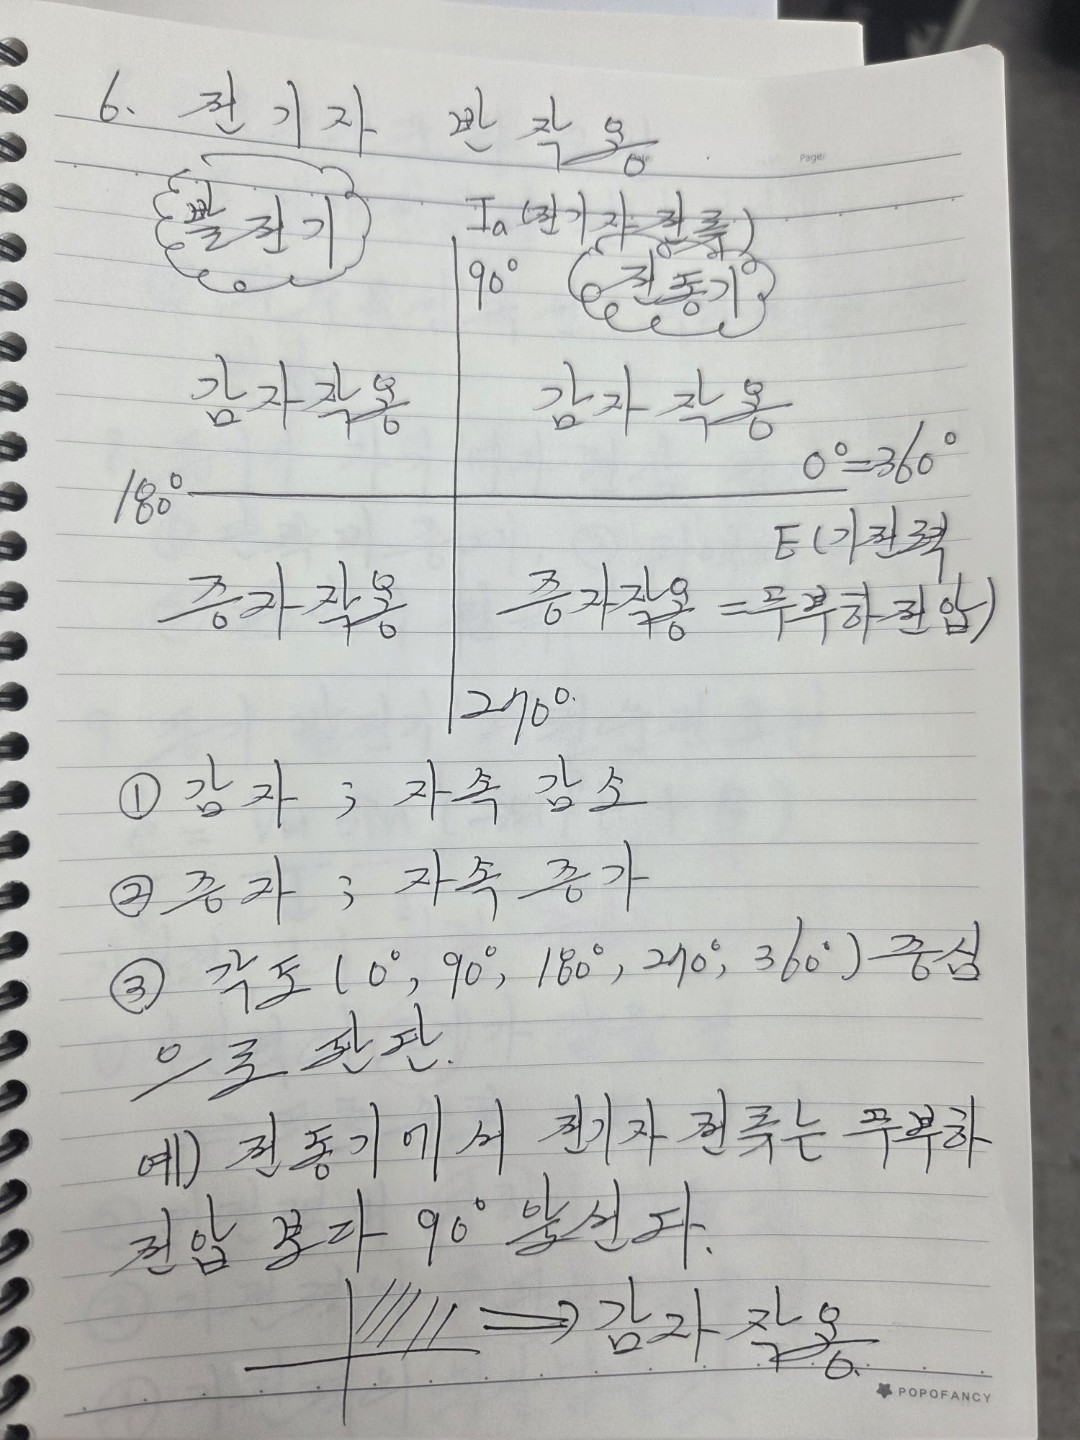 6. 전기자 반작용
Page
발전기
Ia (전기자 전류)
90° 전동기
감자작용 감자 작용
0°=360°
180°
E (기전력
증자작용 증자작용 =무부하전압)
270°
① 감자 ; 자속 감소
② 증자 ; 자속 증가
③ 각도 (0°, 90°, 180°, 270°, 360°) 중심
으로 판단.
예) 전동기에서 전기자 전류는 무부하
전압 보다 90° 앞선다.
⇒ 감자 작용.
POPOFANCY